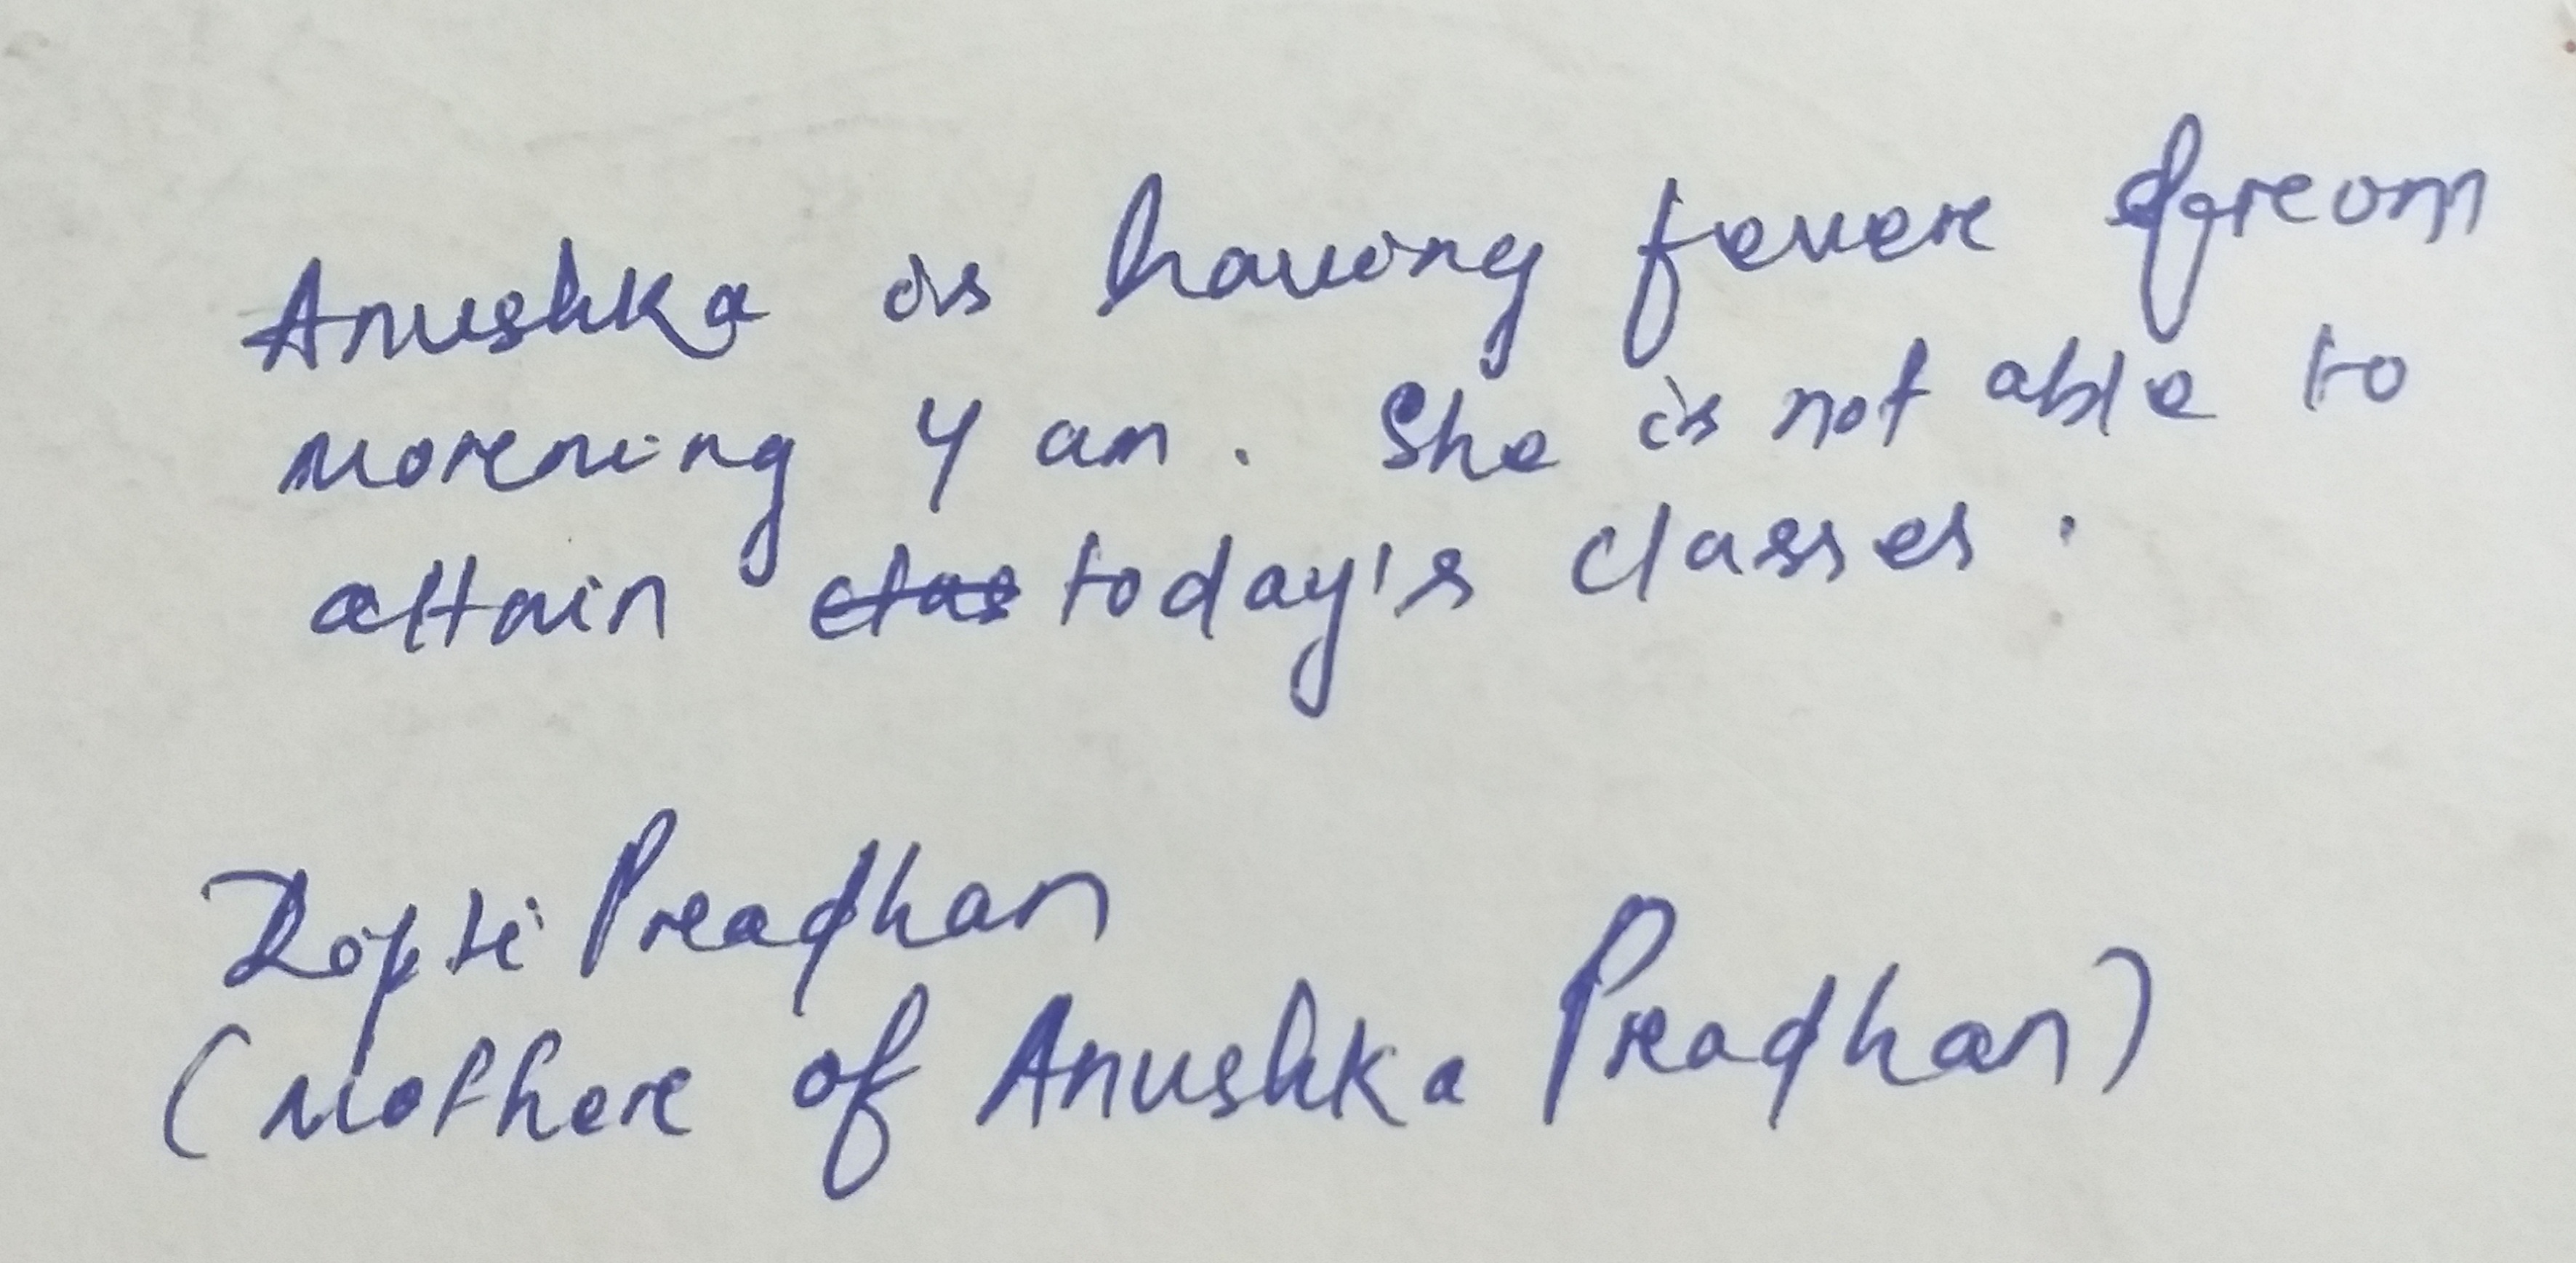 Anushka is having fever from
morning 4 am. She is not able to
attain today's classes.
Dipti Pradhan
(Mother of Anushka Pradhan)